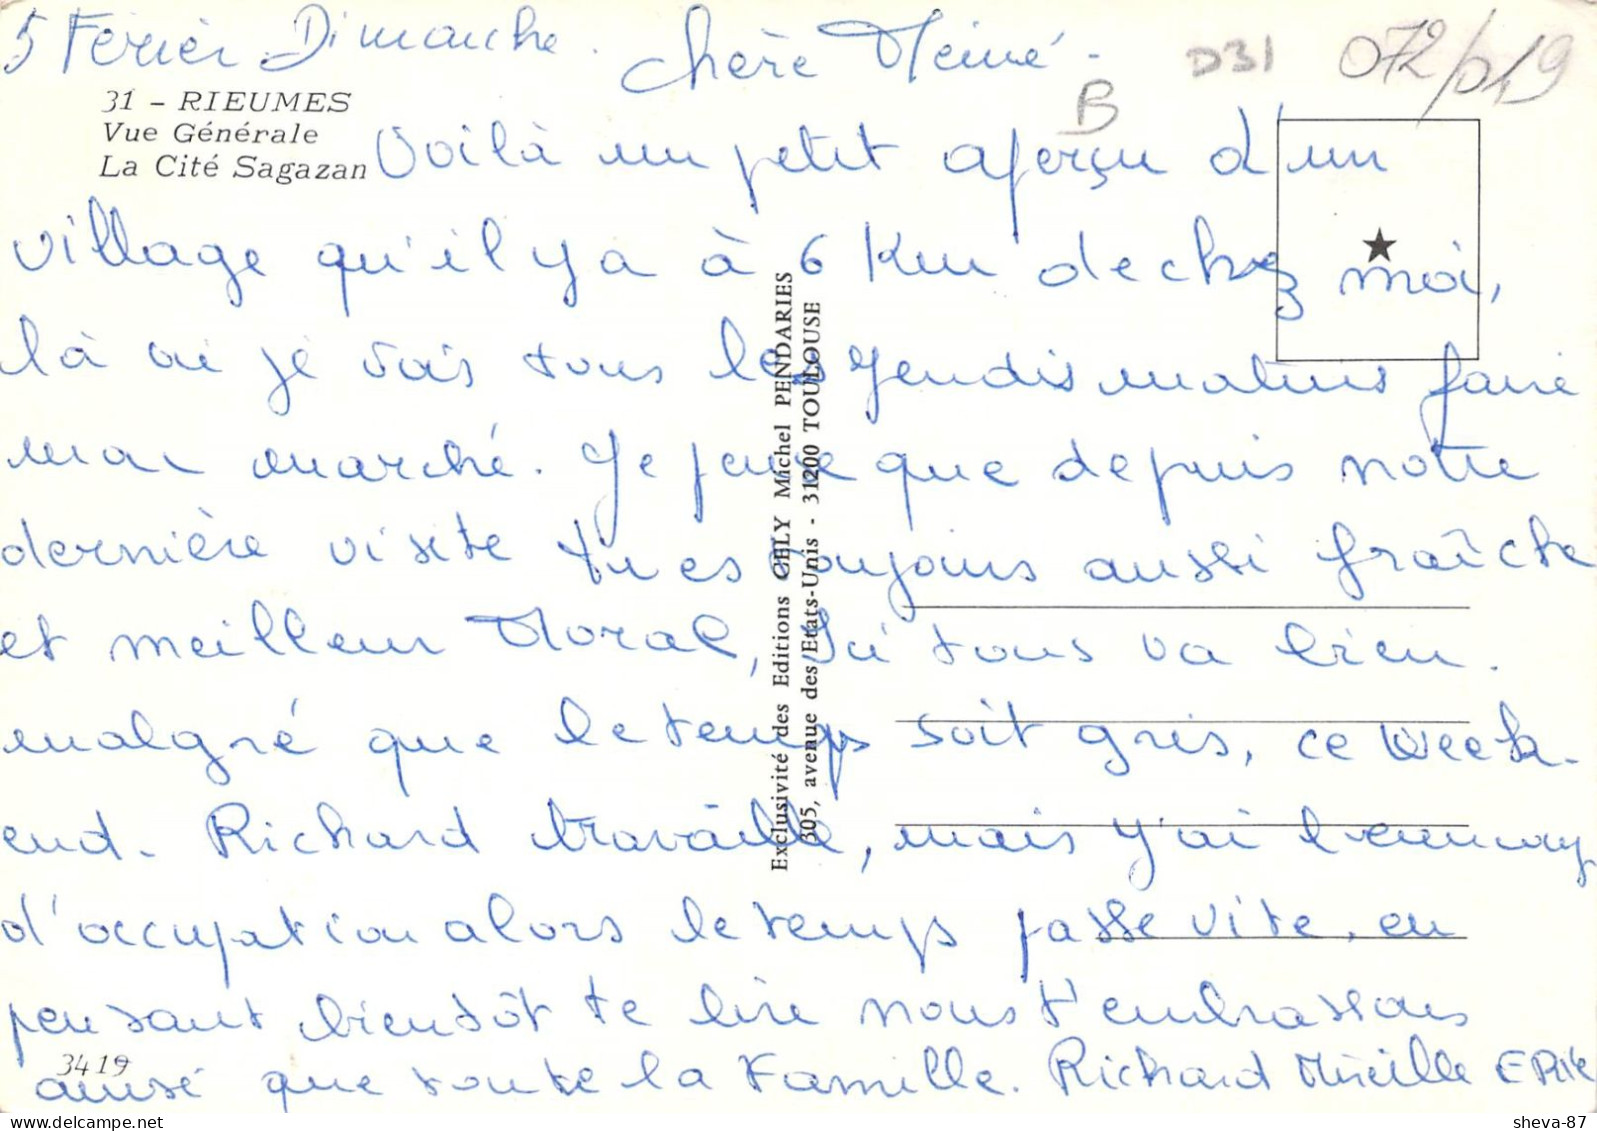 5 Férier Dimanche. Chère Mémé -
D31
072/019
B
31 - RIEUMES
Vue Générale
La Cité Sagazan
Voilà un petit aperçu d'un
village qu'il y a à 6 Km de chez moi,
là où je vais tous les Jeudis matins faire
mon marché. Je pense que depuis notre
dernière visite tu es toujours aussi fraîche
et meilleur Moral, Ici tous va bien.
malgré que le temps soit gris, ce Week-
end. Richard travaille, mais j'ai beaucoup
d'occupation alors le temps passe vite, en
pensant bientôt te lire nous t'embrassons
3419
ainsi que toute la Famille. Richard Mireille ERic
Exclusivité des Editions CELY Michel PENDARIES
305, avenue des Etats-Unis - 31200 TOULOUSE
sheva-87